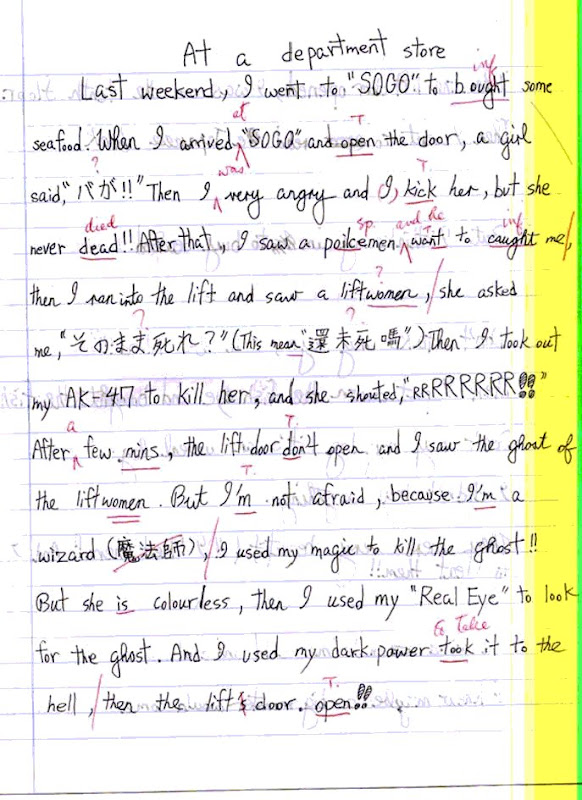 At a department store
inf
Last weekend, I went to "SOGO" to bought some
at T
seafood. When I arrived "SOGO" and open the door, a girl
? was T
said, "バガ!!" Then I very angry and I, kick her, but she
died sp. and he T inf
never dead!! After that, I saw a poilcemen want to caught me,
?
then I ran into the lift and saw a liftwomen, she asked
? ?
me, "そのまま死れ?" (This mean "還未死嗎") Then I took out
my AK-47 to kill her, and she shouted, "RRRRRRRR!!"
a T
After few mins, the lift door don't open and I saw the ghost of
T
the liftwomen. But I'm not afraid, because I'm a
wizard (魔法師), I used my magic to kill the ghost!!
But she is colourless, then I used my "Real Eye" to look
to take
for the ghost. And I used my dark power took it to the
T.
hell, then the lift's door. open!!